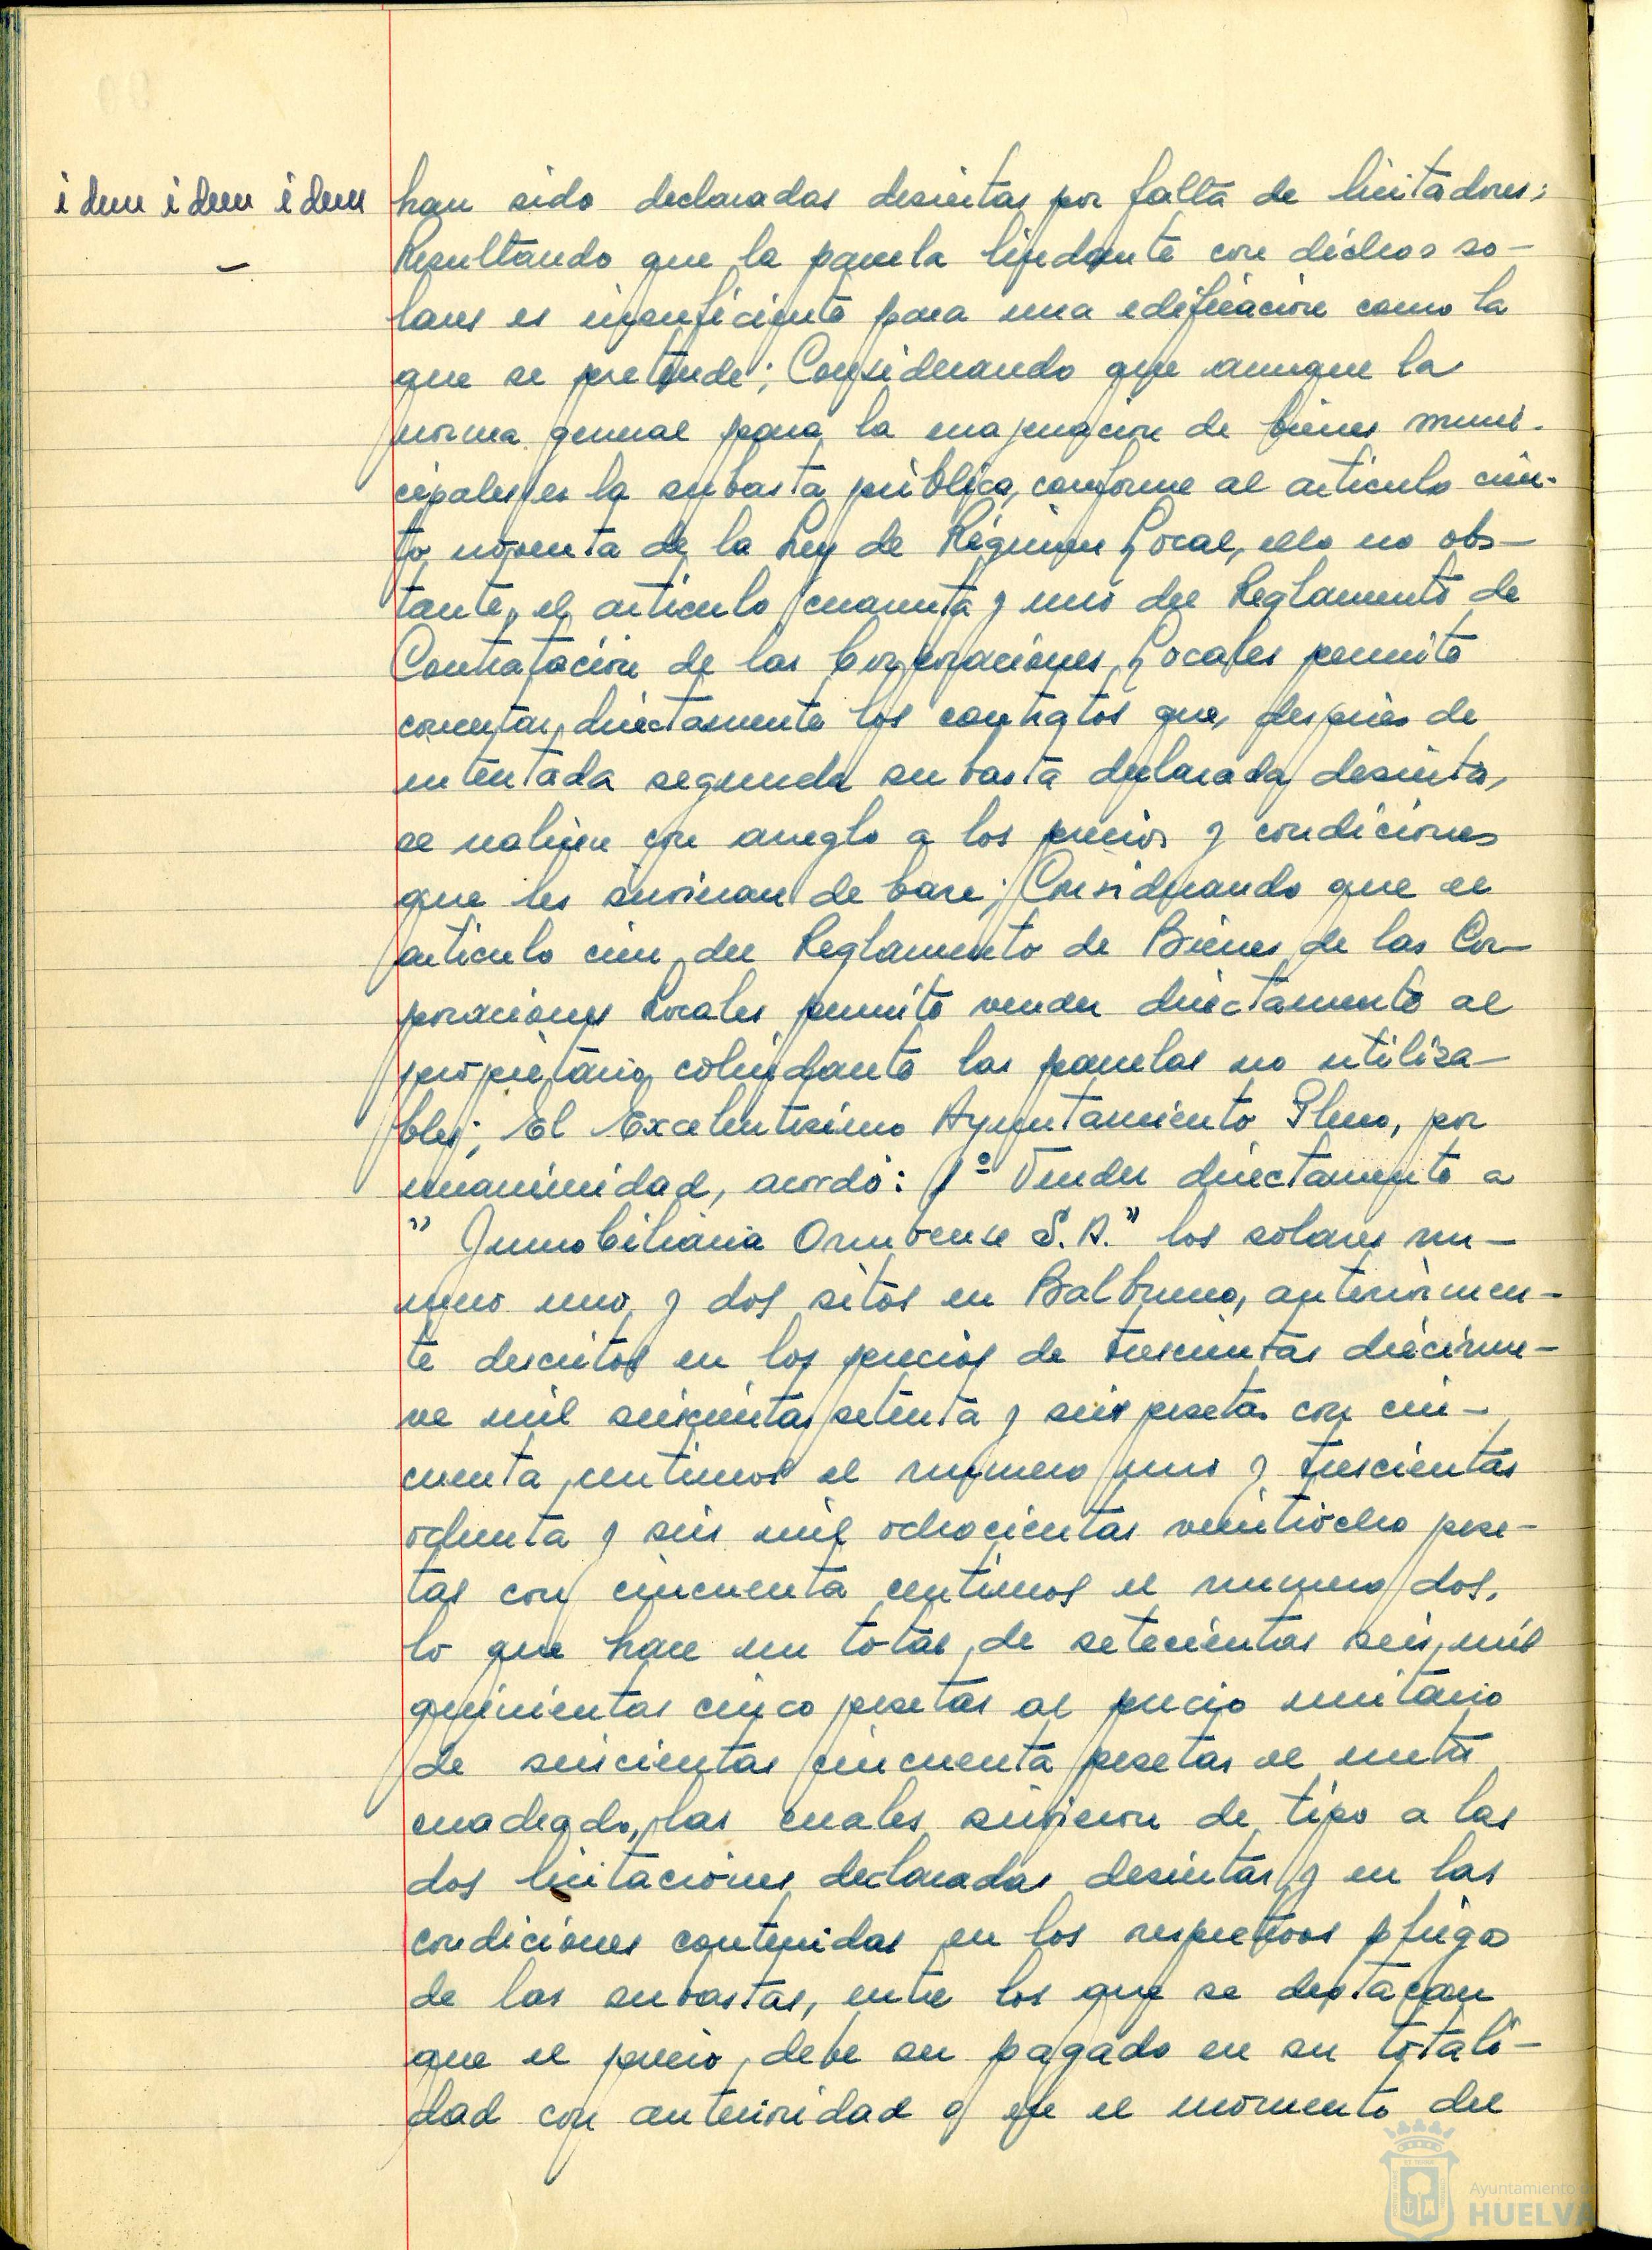 idem idem idem
han sido declaradas desiertas por falta de licitadores;
Resultando que la parcela lindante con dichos so-
lares es insuficiente para una edificación como la
que se pretende; Considerando que aunque la
norma general para la enajenación de bienes muni-
cipales es la subasta pública, conforme al artículo cien-
to noventa de la Ley de Régimen Local, ello no obs-
tante, el artículo cuarenta y uno del Reglamento de
Contratación de las Corporaciones Locales permite
concertar directamente los contratos que, después de
intentada segunda subasta declarada desierta,
se realicen con arreglo a los precios y condiciones
que les sirvieran de base; Considerando que el
artículo cien del Reglamento de Bienes de las Cor-
poraciones Locales permite vender directamente al
propietario colindante las parcelas no utiliza-
bles; El Excelentísimo Ayuntamiento Pleno, por
unanimidad, acordó: 1º Vender directamente a
"Inmobiliaria Onubense S.A." los solares nú-
mero uno y dos sitos en Balbueno, anteriormen-
te descritos en los precios de trescientas diecinue-
ve mil seiscientas setenta y seis pesetas con cin-
cuenta centimos el numero uno y trescientas
ochenta y seis mil ochocientas veintiocho pese-
tas con cincuenta centimos el numero dos,
lo que hace un total de setecientas seis mil
quinientas cinco pesetas al precio unitario
de seiscientas cincuenta pesetas el metro
cuadrado, las cuales sirvieron de tipo a las
dos licitaciones declaradas desiertas y en las
condiciones contenidas en los respectivos pliegos
de las subastas, entre los que se destacan
que el precio debe ser pagado en su totali-
dad con anterioridad o en el momento del
Ayuntamiento de
HUELVA